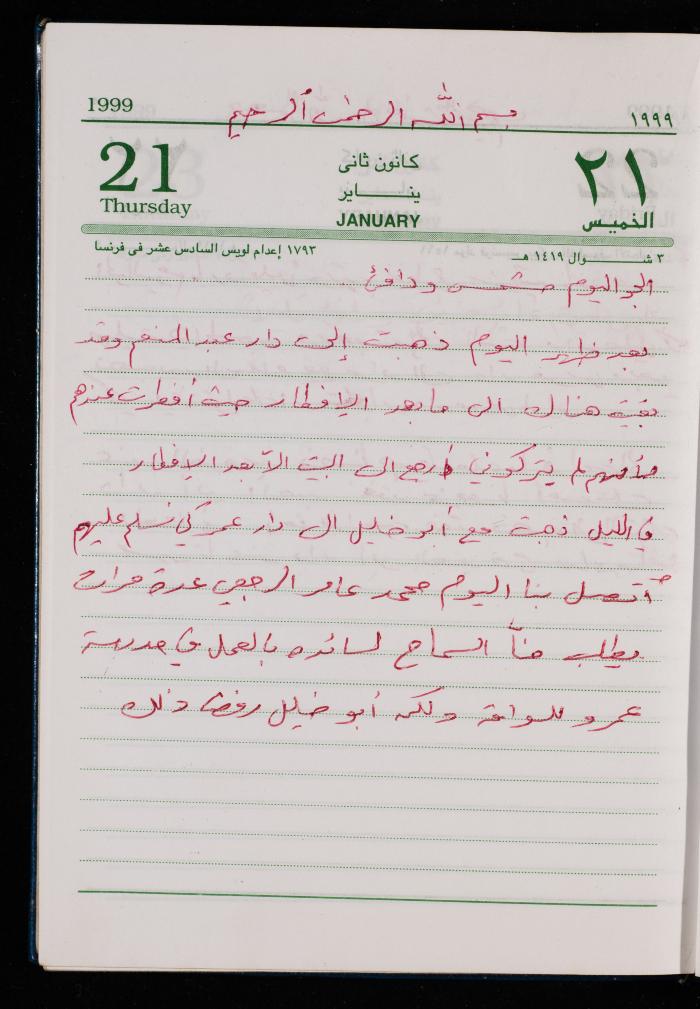 1999 بسم الله الرحمن الرحيم ١٩٩٩
21 كانون ثانى ٢١
Thursday ينــــاير الخميس
JANUARY
٣ شــــوال ١٤١٩ هـ ١٧٩٣ إعدام لويس السادس عشر فى فرنسا
الجو اليوم مشمس ودافئ
بعد اليوم ذهبت إلى دار عبد المنعم وقد
بقيت هناك الى ما بعد الإفطار حيث أفطرت عندهم
لم يتركوني ارجع الى البيت الا بعد الافطار
في الليل ذهبت مع أبو خليل الى دار عمر كي نسلم عليهم
أتصل بنا اليوم محمد عامر الرجعي عدة مرات
يطلب منّا السماح لسائده بالعمل في مدرسة
عمرو للسواقة ولكن أبو خليل رفض ذلك